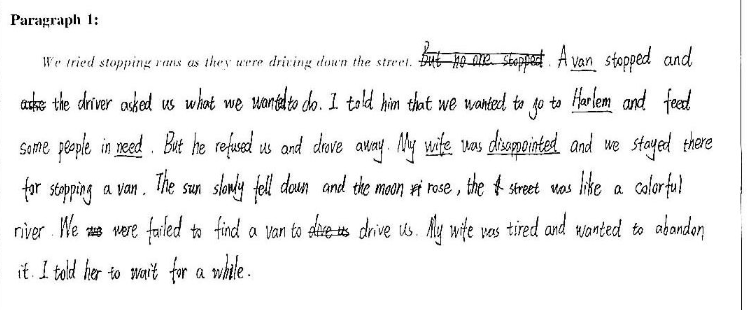 Paragraph 1:
We tried stopping vans as they were driving down the street. But no one stopped. A van stopped and
the driver asked us what we wanted to do. I told him that we wanted to go to Harlem and feed
some people in need. But he refused us and drove away. My wife was disappointed and we stayed there
for stopping a van. The sun slowly fell down and the moon rose, the street was like a colorful
river. We were failed to find a van to drive us. My wife was tired and wanted to abandon
it. I told her to wait for a while.